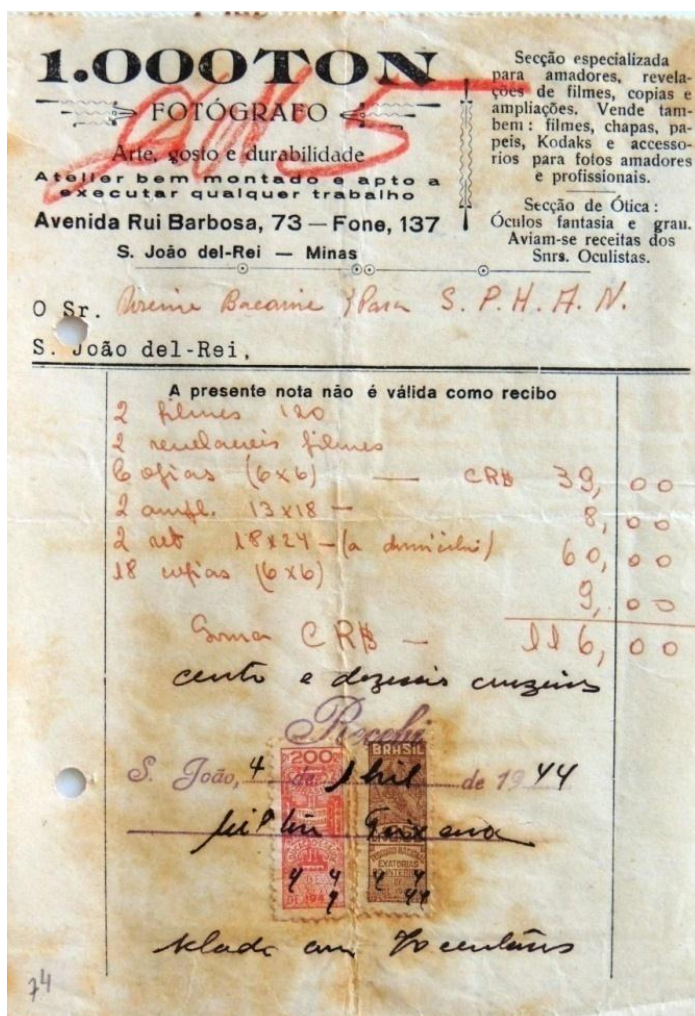 1.000TON
FOTÓGRAFO
Arte, gosto e durabilidade
Atelier bem montado e apto a
executar qualquer trabalho
Avenida Rui Barbosa, 73 — Fone, 137
S. João del-Rei — Minas
Secção especializada
para amadores, revela-
ções de filmes, copias e
ampliações. Vende tam-
bem : filmes, chapas, pa-
peis, Kodaks e accesso-
rios para fotos amadores
e profissionais.
Secção de Ótica :
Óculos fantasia e grau.
Aviam-se receitas dos
Snrs. Oculistas.
O Sr. Bacarine Para S. P. H. A. N.
S. João del-Rei,
A presente nota não é válida como recibo
2 filmes 120
2 revelacuis filmes
6 opias (6x6) — CR$ 39,00
2 ampl. 13x18 — 8,00
2 ret 18x24 — (a domicilio) 60,00
18 copias (6x6) 9,00
Soma CR$ — 116,00
cento e dezesseis cruzeiros
Recebi
S. João, 4 de Abril de 1944
Teixeira
200
BRASIL
4 4
4 4
44
DE 194
Selado com centavos
74